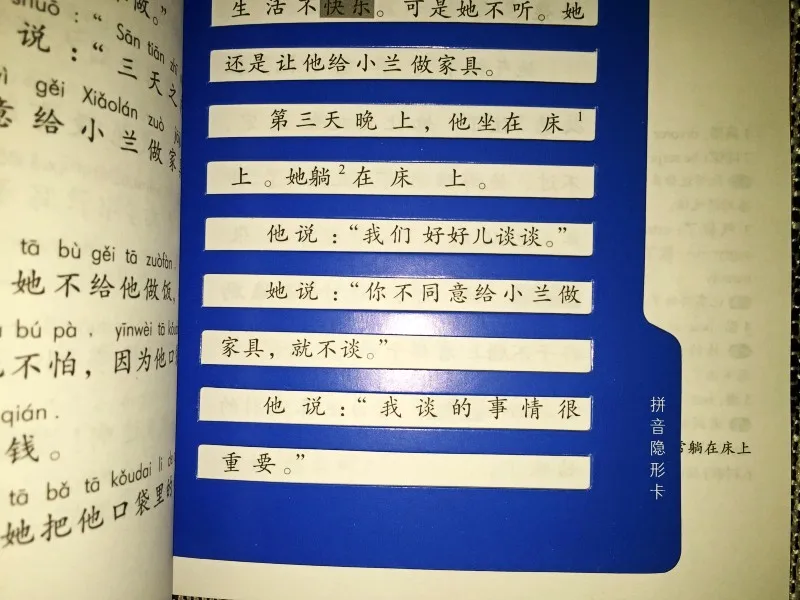 shuō : "Sān tiān
说：“三天之
gěi Xiǎolán zuò
意给小兰做家
tā bù gěi tā zuòfàn.
她不给他做饭，
bú pà . yīnwèi tā kǒu
不怕，因为他口
qián .
钱。
tā bǎ tā kǒudai li de
她把他口袋里的
生活不快乐。可是她不听。她
还是让他给小兰做家具。
第三天晚上，他坐在床1
上。她躺2在床上。
他说：“我们好好儿谈谈。”
她说：“你不同意给小兰做
家具，就不谈。”
他说：“我谈的事情很
重要。”
拼音隐形卡
躺在床上